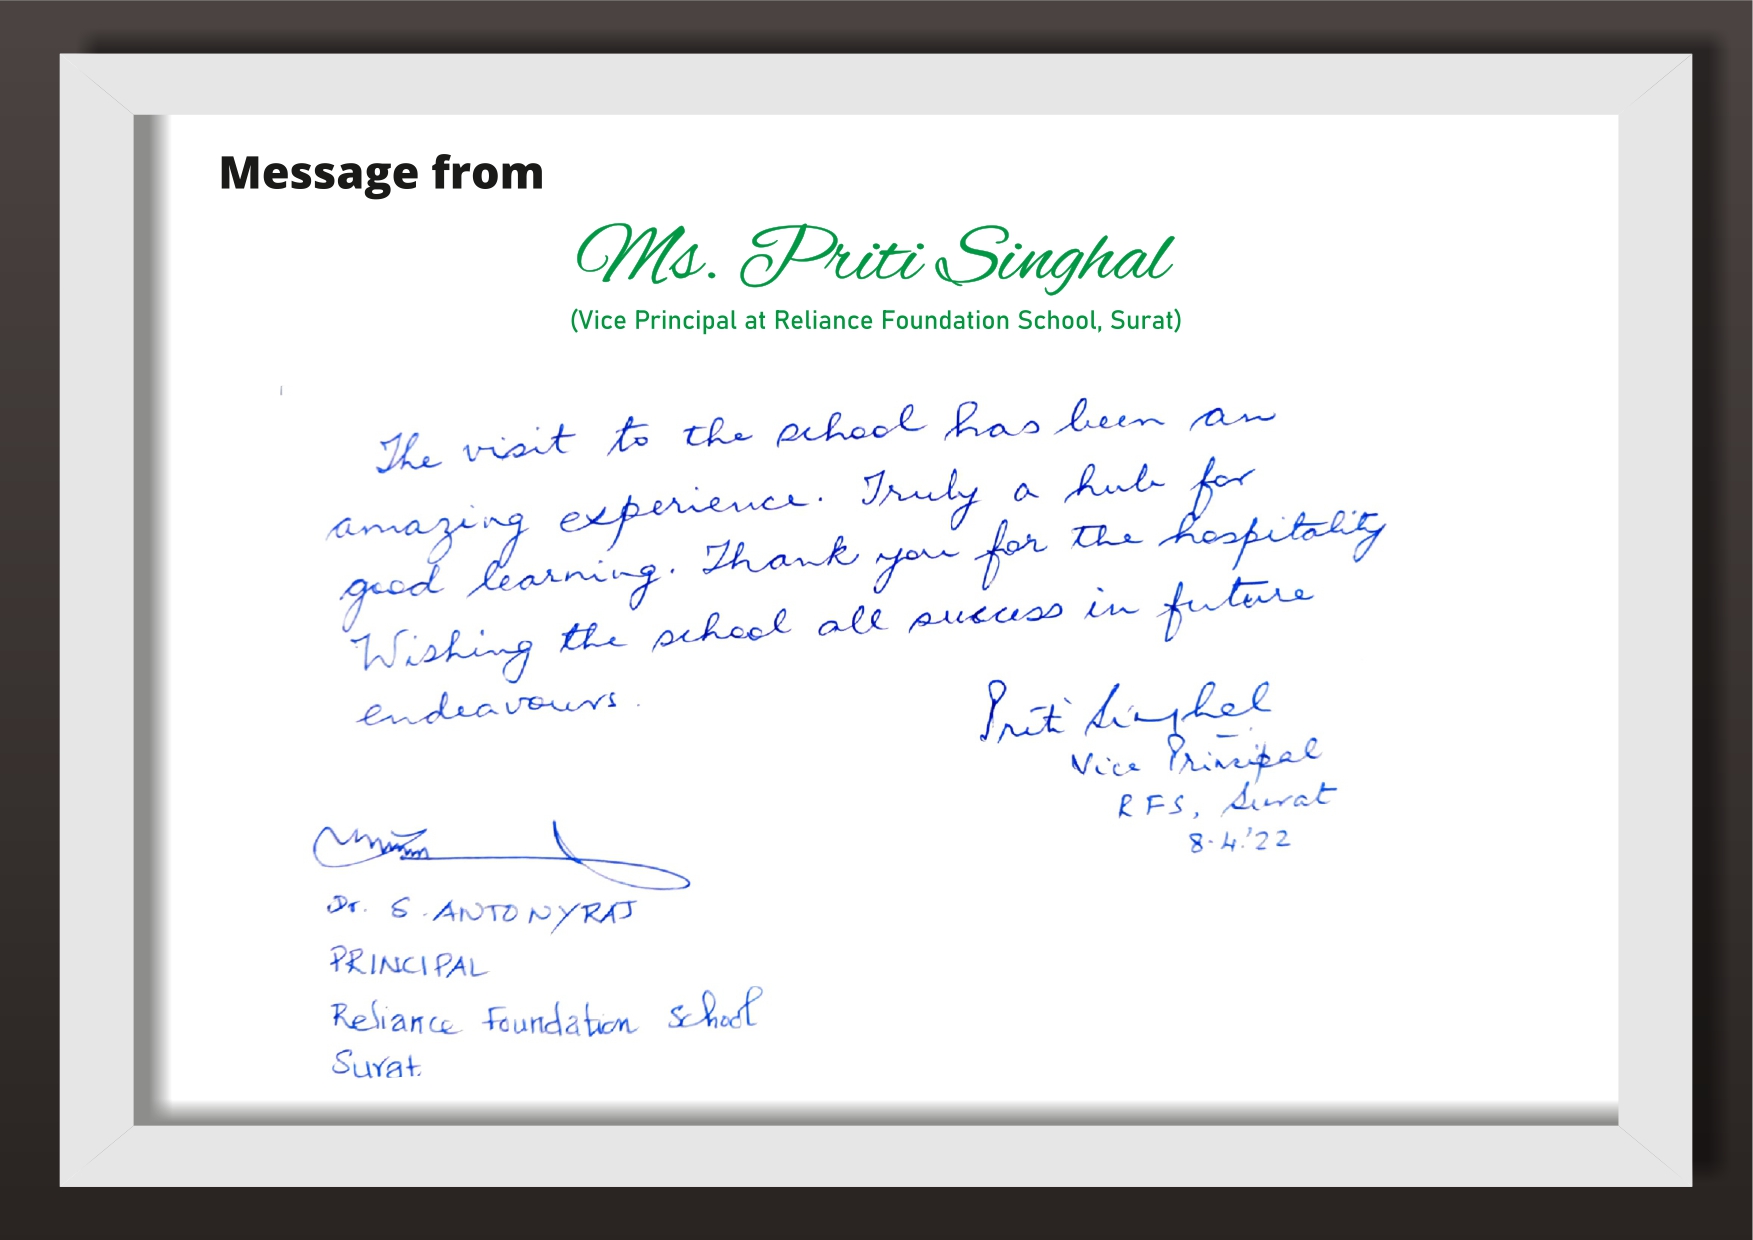 Message from
Ms. Priti Singhal
(Vice Principal at Reliance Foundation School, Surat)
The visit to the school has been an
amazing experience. Truly a hub for
good learning. Thank you for the hospitality
Wishing the school all success in future
endeavours.
Priti Singhal
Vice Principal
RFS, Surat
8.4.'22
Dr. S. ANTONYRAJ
PRINCIPAL
Reliance Foundation School
Surat.